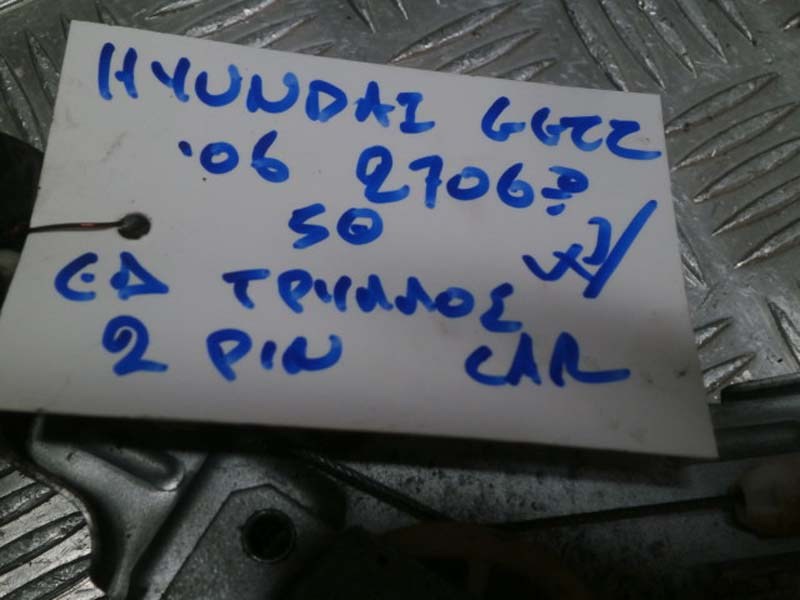 HYUNDAI GETZ
'06 2706?
50
ΕΔ ΓΡΥΛΛΟΣ
2 PIN CAR